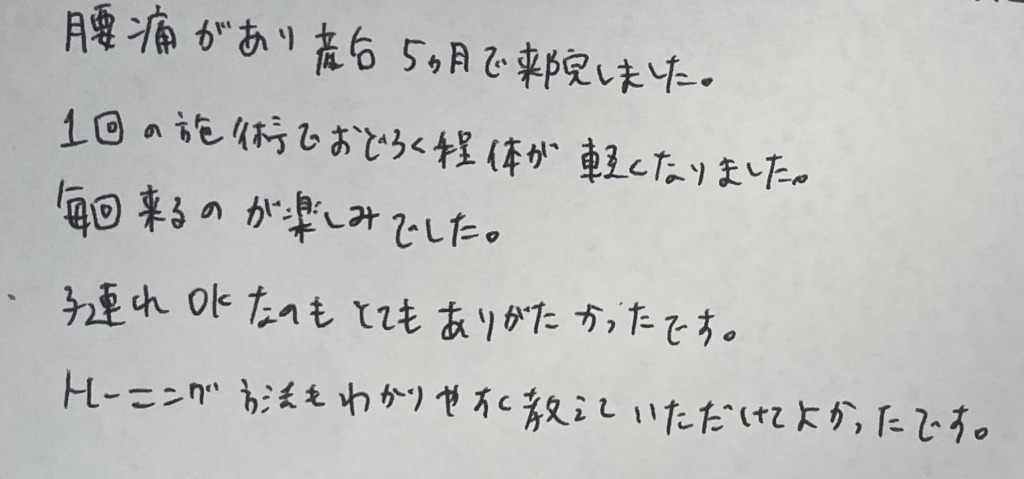 腰痛があり産后5ヵ月で来院しました。
1回の施術でおどろく程体が軽くなりました。
毎回来るのが楽しみでした。
子連れOKなのもとてもありがたかったです。
トレーニング方法もわかりやすく教えていただけてよかったです。